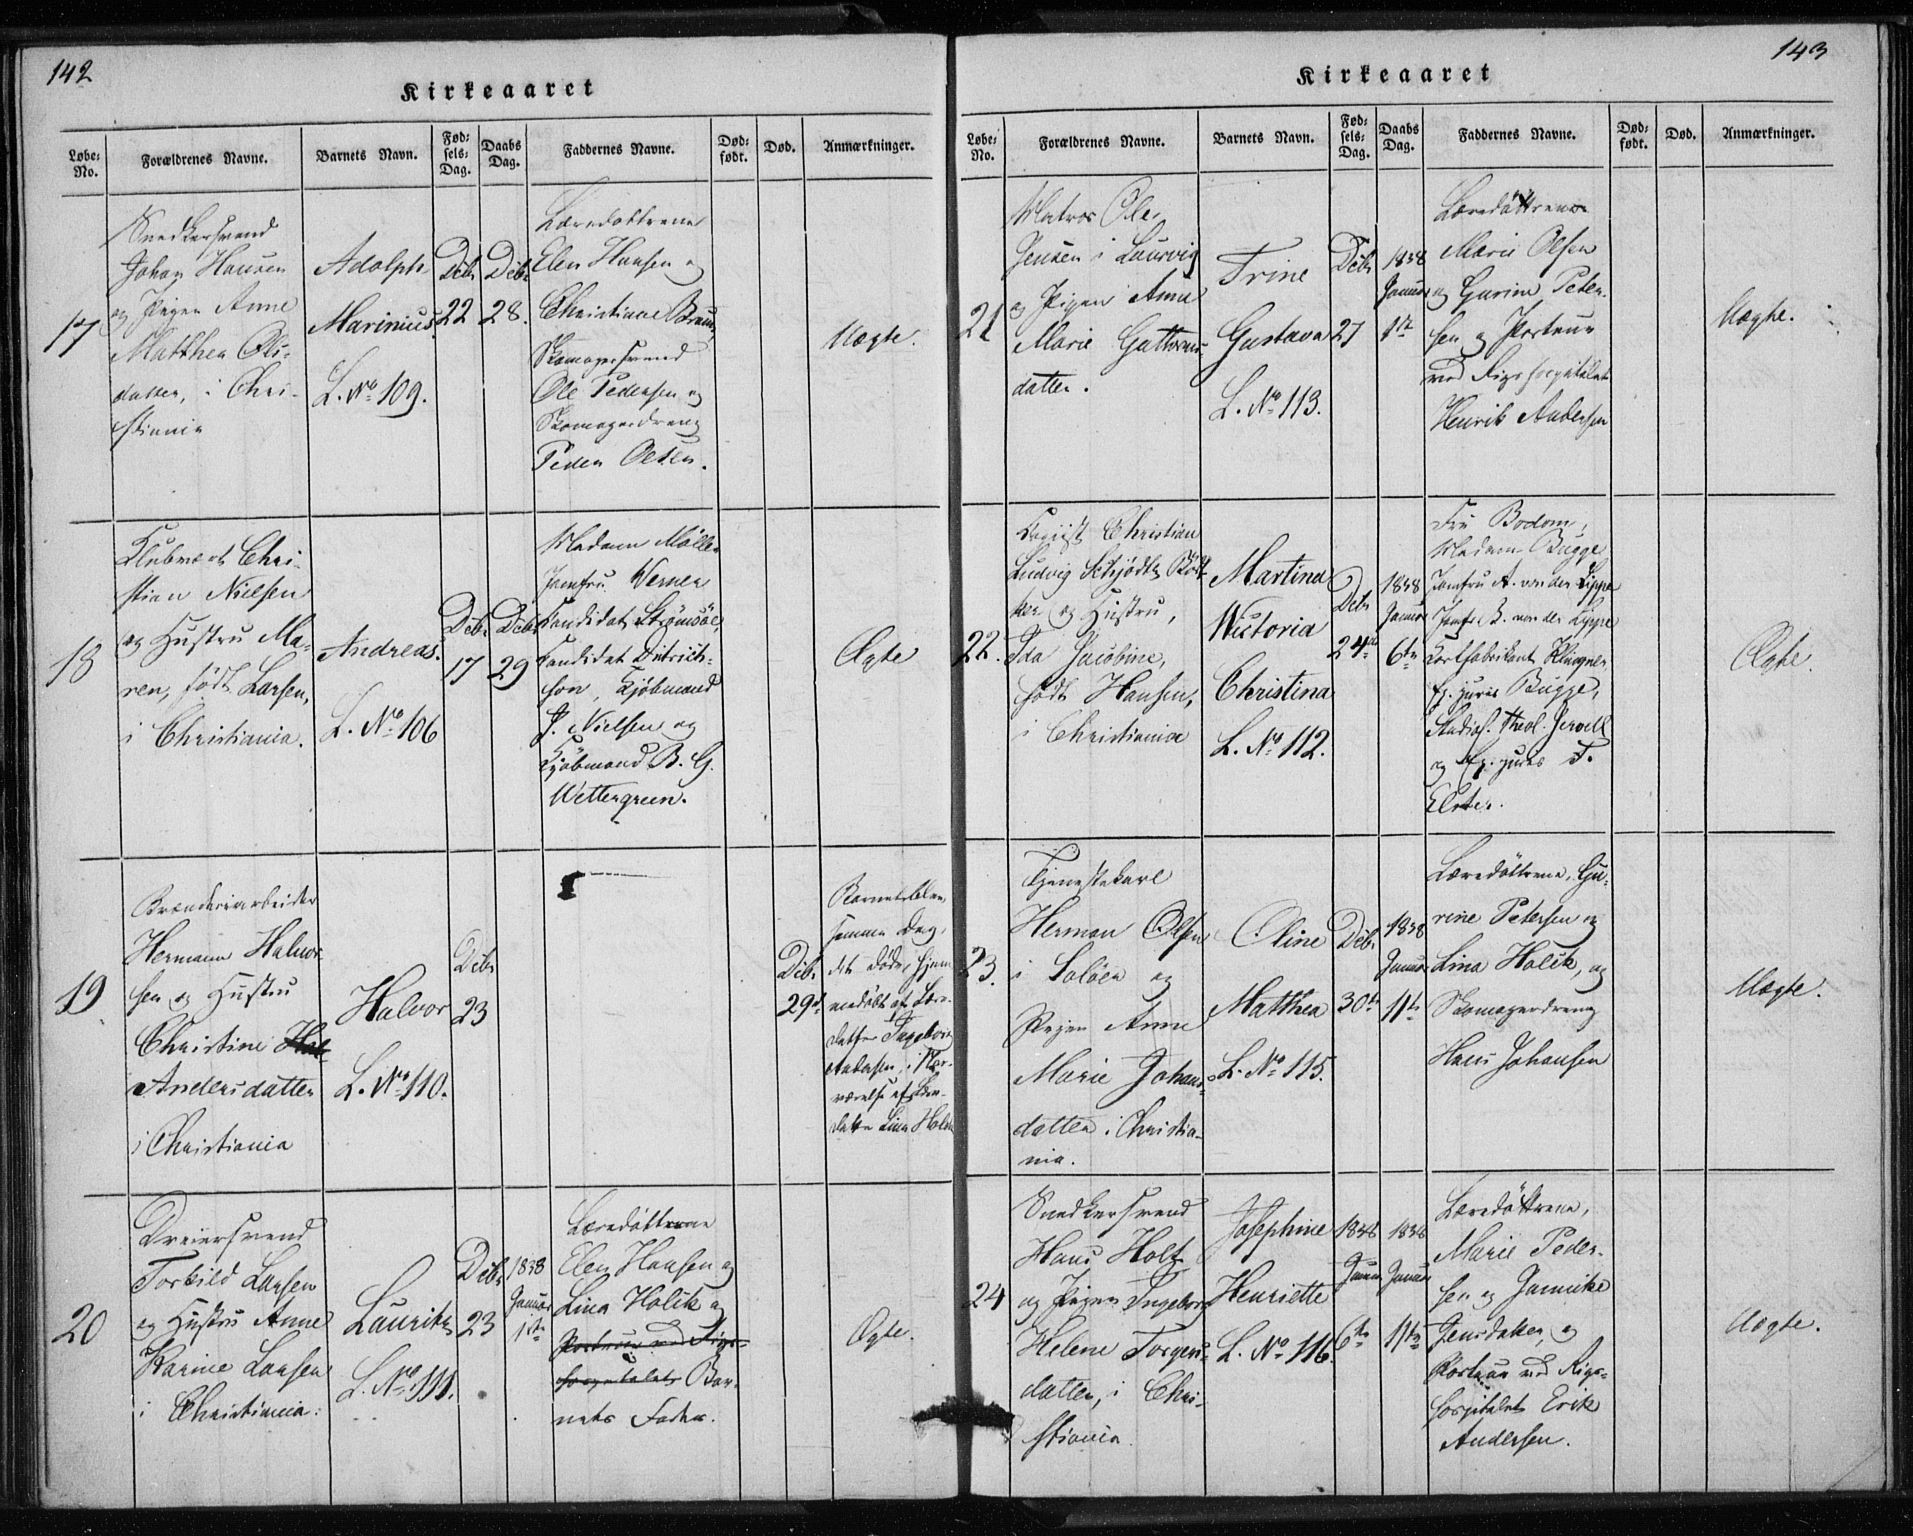 142
Kirkeaaret
Løbe-No.
Forældrenes Navne.
Barnets Navn.
Fødsels-Dag.
Daabs Dag.
Faddernes Navne.
Dødfødt.
Død.
Anmærkninger.
17
Snedkersvend
Johan Hansen
og Pigen Anne
Matthea Ols-
datter, i Chri-
stiania
Adolph
Marinius
L. No 109.
Dcbr
22
Dcbr
28.
Læredøttrene
Elen Hansen og
Christiane Bruun,
Skomagersvend
Ole Pedersen og
Skomagerdreng
Peder Olsen.
Uægte.
18
Klubvært Chri-
stian Nielsen
og Hustru Ma-
ren, født Larsen,
i Christiania.
Andreas.
L. No 106
Dcbr
17
Dcbr
29
Madam Møller
Jomfru Werner
Kandidat Strømsøe,
Kandidat Ditrich-
son, Kjøbmand
J. Nielsen og
Kjøbmand B. G.
Wettergreen.
Ægte
19
Brænderiarbeider
Hermann Halvor-
sen og Hustru
Christine Hal
Andersdatter
i Christiania
Halvor
L. No 110.
Dcbr
23
Dcbr
29d
Barnet blev
samme Dag,
det døde, hjem-
medøbt af Lære-
datter Ingeborg
Andersen, i Nær-
værelse af Lære-
datter Lina Holik
20
Dreiersvend
Torkild Larsen
og Hustru Anne
Karine Larsen
i Christiania.
Lauritz
L. No 111.
Dcbr
23
1838
Januar
1ste
Læredøttrene
Elen Hansen og
Lina Holik og
Portneren ved Rigs-
hospitalet Bar-
nets Fader.
Ægte.
143
Kirkeaaret
Løbe-No.
Forældrenes Navne.
Barnets Navn.
Fødsels-Dag.
Daabs Dag.
Faddernes Navne.
Dødfødt.
Død.
Anmærkninger.
21
Matros Ole
Jensen i Laurvig
og Pigen Anne
Marie Guttorms-
datter.
Trine
Gustava
L. No 113.
Dcbr
27
1838
Januar
1ste
Læredøttrene
Marie Olsen
og Gurine Peter-
sen og Portneren
ved Rigshospitalet
Henrik Andersen
Uægte.
22.
Christian
Ludvig
og Hustru,
Ida Jacobine,
født Hansen,
i Christiania
Martina
Victoria
Christina
L. No 112.
Dcbr
24de
1838
Januar
6te
Fru Bodom,
Madam Bugge
Jomfru A. von der Lippe
Jomfru B. von der Lippe
Kortfabrikant Klingner
Ex. juris Bugge,
Studios. theol. Jervell
og Ex. juris F.
Elster.
Ægte.
23.
Tjenestekarl
Herman Olsen
i Soløer og
Pigen Anne
Marie Johans-
datter i Christia-
nia.
Oline
Matthea
L. No 115.
Dcbr
30te
1838
Januar
11te
Læredøttrene, Gu-
rine Petersen og
Lina Holik, og
Skomagerdreng
Hans Johansen
Uægte.
24
Snedkersvend
Hans Holt
og Pigen Ingeborg
Helene Torgers-
datter, i Chri-
stiania
Josephine
Henriette
L. No 116.
1838
Januar
6te
1838
Januar
11te
Læredøttrene,
Marie Peder-
sen og Jannike
Jensdatter, og
Portneren ved Rigs-
hospitalet Erik
Andersen.
Uægte.